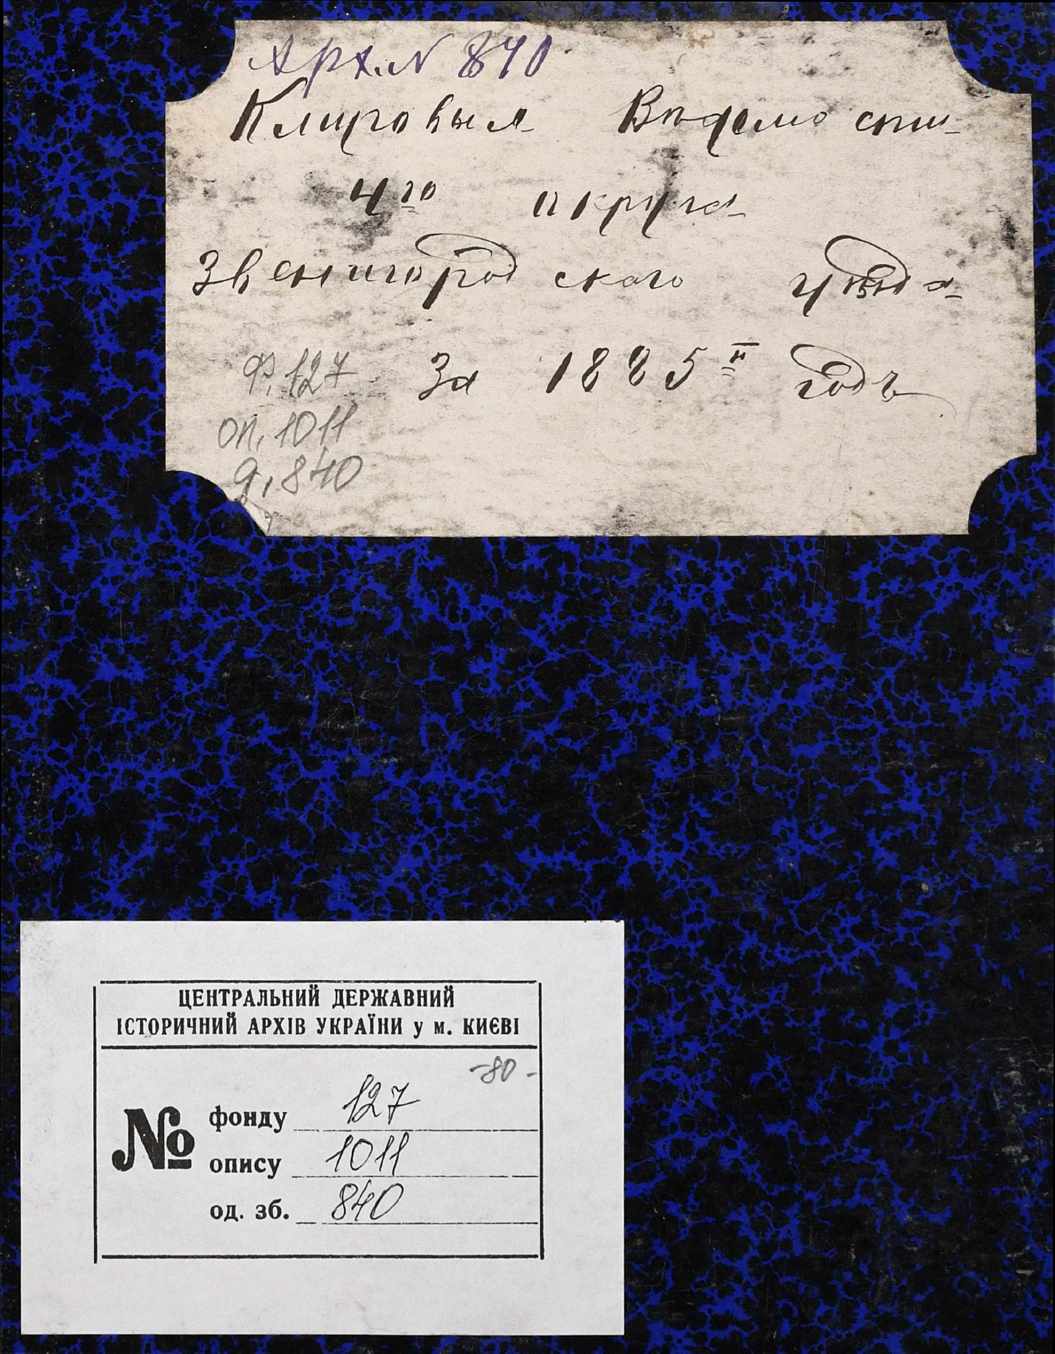 Арх. N 840
Клировыя Вѣдомости
4го округа
Звенигородского уѣзда
За 1885й годъ
Ф. 127
оп. 1011
д. 840
ЦЕНТРАЛЬНИЙ ДЕРЖАВНИЙ
ІСТОРИЧНИЙ АРХІВ УКРАЇНИ у м. КИЄВІ
-80-
№
фонду 127
опису 1011
од. зб. 840